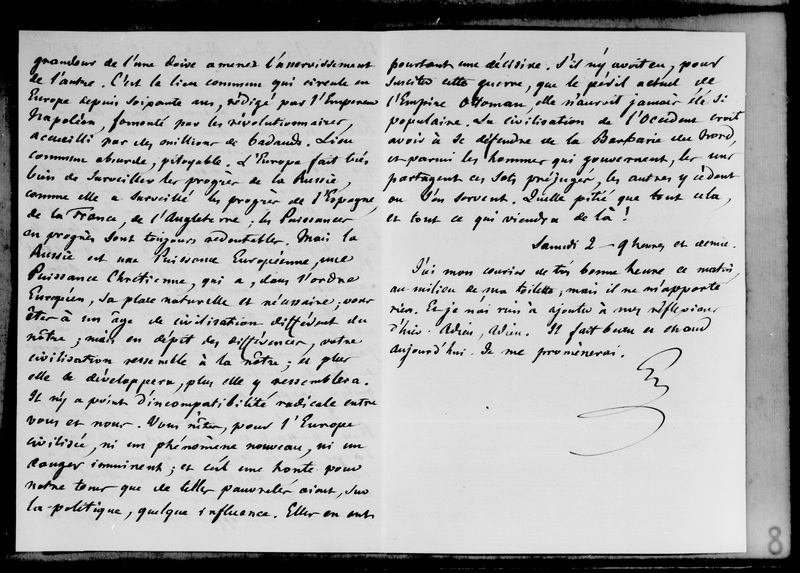 grandeur de l'une doive amener l'asservissement
de l'autre. C'est là lieu commun qui circule en
Europe depuis soixante ans, rédigé par l'Empereur
Napoléon, fomenté par les révolutionnaires,
accueilli par des millions de badauds. Lieu
commun absurde, pitoyable. L'Europe fait très
bien de surveiller les progrès de la Russie,
comme elle a surveillé les progrès de l'Espagne,
de la France, de l'Angleterre ; les Puissances
en progrès sont toujours redoutables. Mais la
Russie est une Puissance Européenne, une
Puissance Chrétienne, qui a, dans l'ordre
Européen, sa place naturelle et nécessaire ; vous
êtes à un âge de civilisation différent du
nôtre ; mais en dépit des différences, votre
civilisation ressemble à la nôtre ; et plus
elle se développera, plus elle y ressemblera.
Il n'y a point d'incompatibilité radicale entre
vous et nous. Vous n'êtes, pour l'Europe
civilisée, ni un phénomène nouveau, ni un
danger imminent ; et c'est une honte pour
notre tems que de telles pauvretés aient, sur
la politique, quelque influence. Elles en ont
pourtant une décisive. S'il n'y avoit eu, pour
susciter cette guerre, que le péril actuel de
l'Empire Ottoman, elle n'auroit jamais été si
populaire. La civilisation de l'Occident croit
avoir à se défendre de la Barbarie du Nord,
et parmi les hommes qui gouvernent, les uns
partagent ces sots préjugés, les autres y cèdent
ou s'en servent. Quelle pitié que tout cela,
et tout ce qui viendra de là !
Samedi 2 – 9 heures et demie.
J'ai mon courier de très bonne heure ce matin,
au milieu de ma toilette, mais il ne m'apporte
rien. Et je n'ai rien à ajouter à mes réflexions
d'hier. Adieu, Adieu. Il fait beau et chaud
aujourd'hui. Je me promènerai.
8